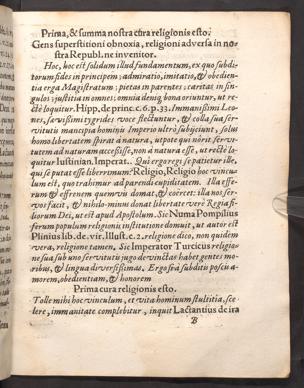 Prima, & summa nostra cura religionis esto.
Gens superstitioni obnoxia, religioni adversa in no-
stra Republ. ne invenitor.
Hoc, hoc est solidum illud fundamentum, ex quo subdi-
torum fides in principem; admiratio, imitatio, & obedien-
tia erga Magistratum; pietas in parentes; caritas in sin-
gulos; justitia in omnes; omnia deniq; bona oriuntur, ut re-
cte loquitur. Hipp. de princ. c. 6. p. 33. Immanissimi Leo-
nes, sævissimi tygrides voce flectuntur, & colla sua ser-
vitutis mancipia hominis Imperio ultrò subjiciunt, solus
homo libertatem spirat à natura, utpote qui nôrit servi-
tutem ad naturam accessisse, non à natura esse, ut rectè lo-
quitur Iustinian. Imperat. Qui ergo regi se patietur ille,
qui se putat esse liberrimum? Religio, Religio hoc vincu-
lum est, quo trahimur ad parendi cupiditatem. Illa effe-
rum & effrenem quemvis domat, & coërcet: illa nos ser-
vos facit, & nihilo-minus donat libertate verè Regia fi-
liorum Dei, ut est apud Apostolum. Sic Numa Pompilius
ferum populum religionis institutione domuit, ut autor est
Plinius lib. de. vir. Illust. c. 2. religione dico, non quidem
vera, religione tamen, Sic Imperator Turcicus religio-
ne sua sub uno servitutis jugo devinctas habet gentes mo-
ribus, & lingua diversissimas, Ergo si à subditis poscis a-
morem, obedientiam, & honorem
Prima cura religionis esto.
Tolle mihi hoc vinculum, et vita hominum stultitia, sce-
lere, immanitate complebitur, inquit Lactantius de ira
B